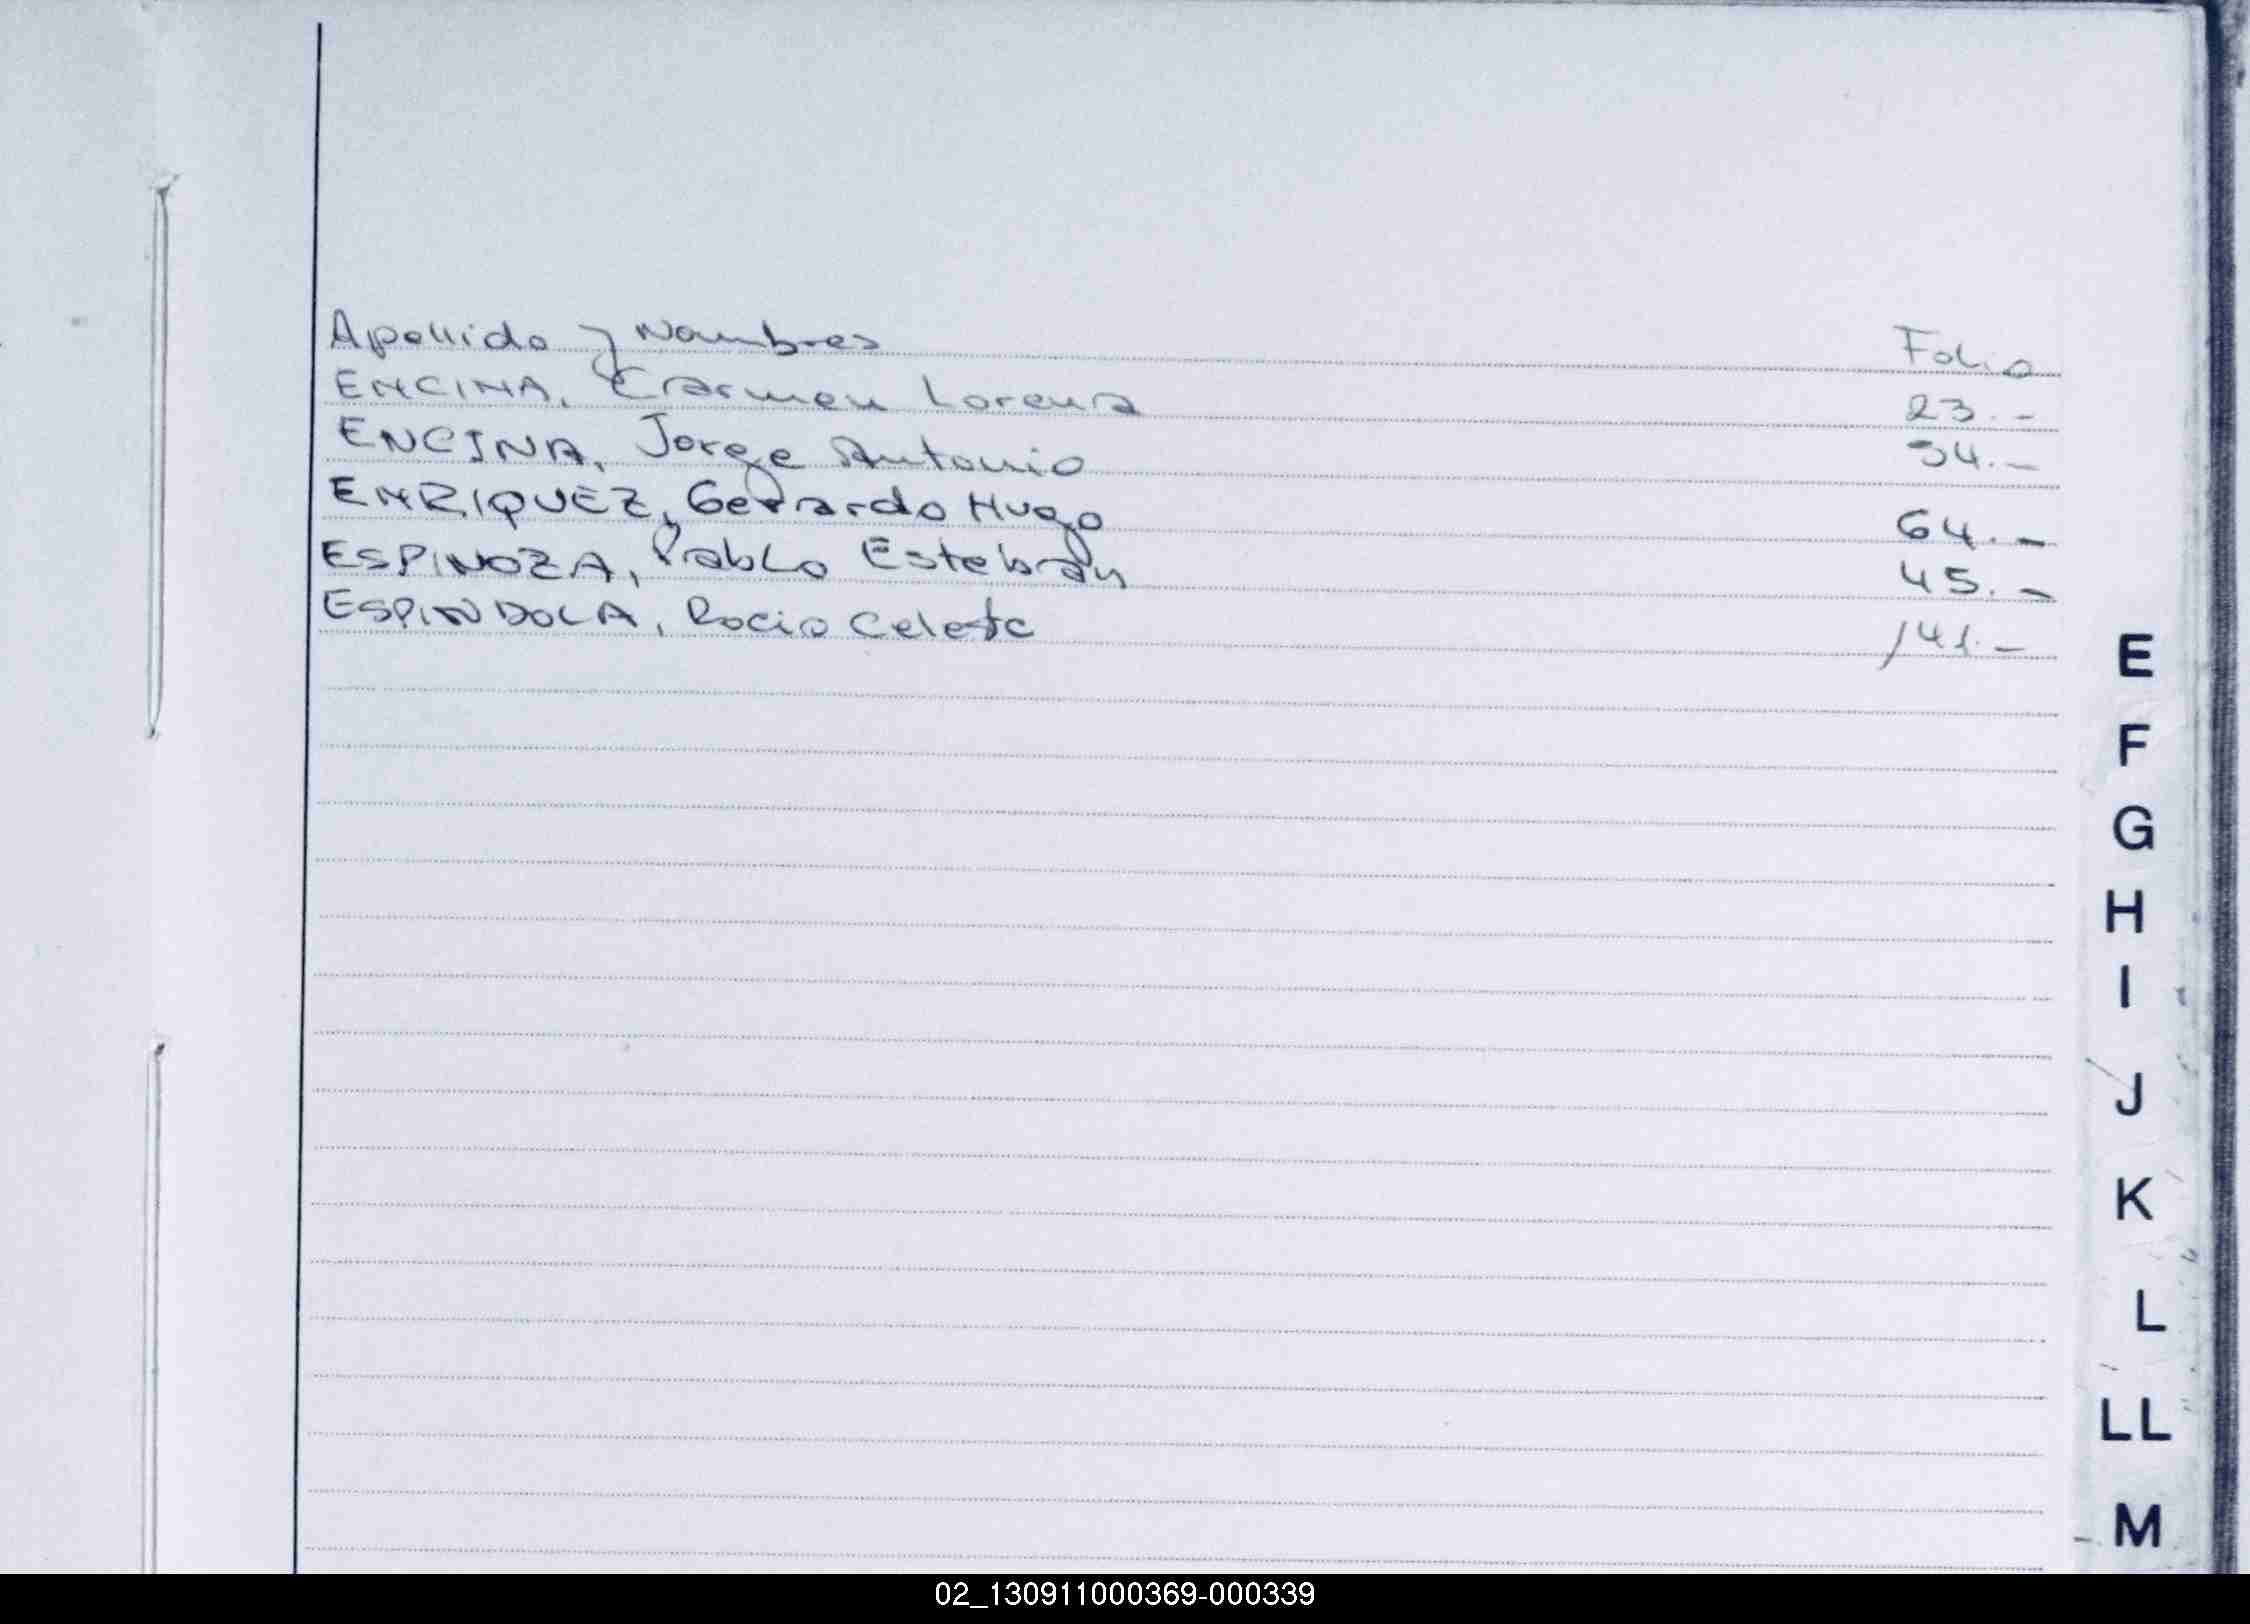 Apellido y Nombres Folio
ENCINA, Carmen Lorena 23.-
ENCINA, Jorge Antonio 34.-
ENRIQUEZ, Gerardo Hugo 64.-
ESPINOZA, Pablo Esteban 45.-
ESPINDOLA, Rocio Celeste 141.-
E
F
G
H
I
J
K
L
LL
M
02_130911000369-000339